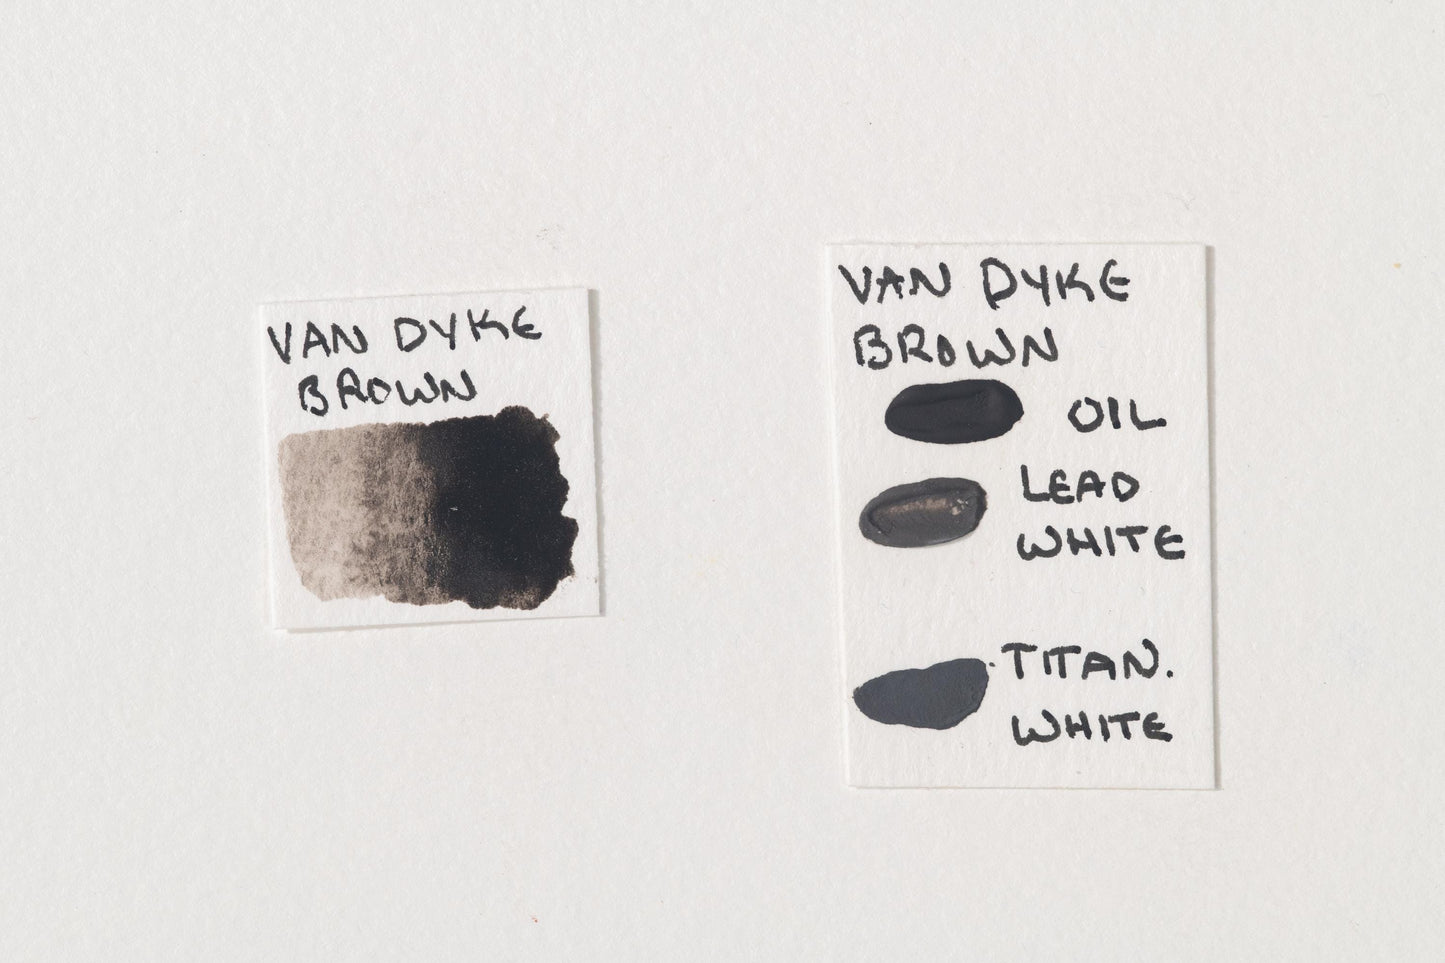 VAN DYKE
BROWN
VAN DYKE
BROWN
OIL
LEAD
WHITE
TITAN.
WHITE